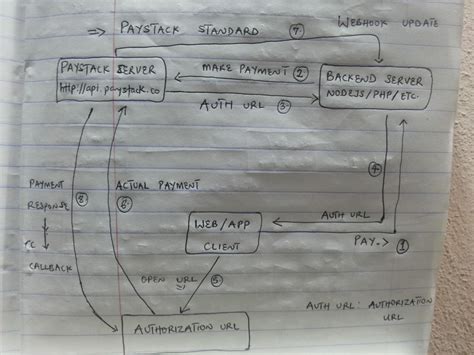 => PAYSTACK STANDARD
⑦
WEBHOOK UPDATE
PAYSTACK SERVER
http://api.paystack.co
MAKE PAYMENT ②
AUTH URL ③
BACKEND SERVER
NODEJS/PHP/ETC.
PAYMENT
RESPONSE
⑧
CALLBACK
ACTUAL PAYMENT
⑥
④
AUTH URL
WEB/APP
CLIENT
PAY → ①
OPEN URL ⑤
AUTHORIZATION URL
AUTH URL: AUTHORIZATION
URL